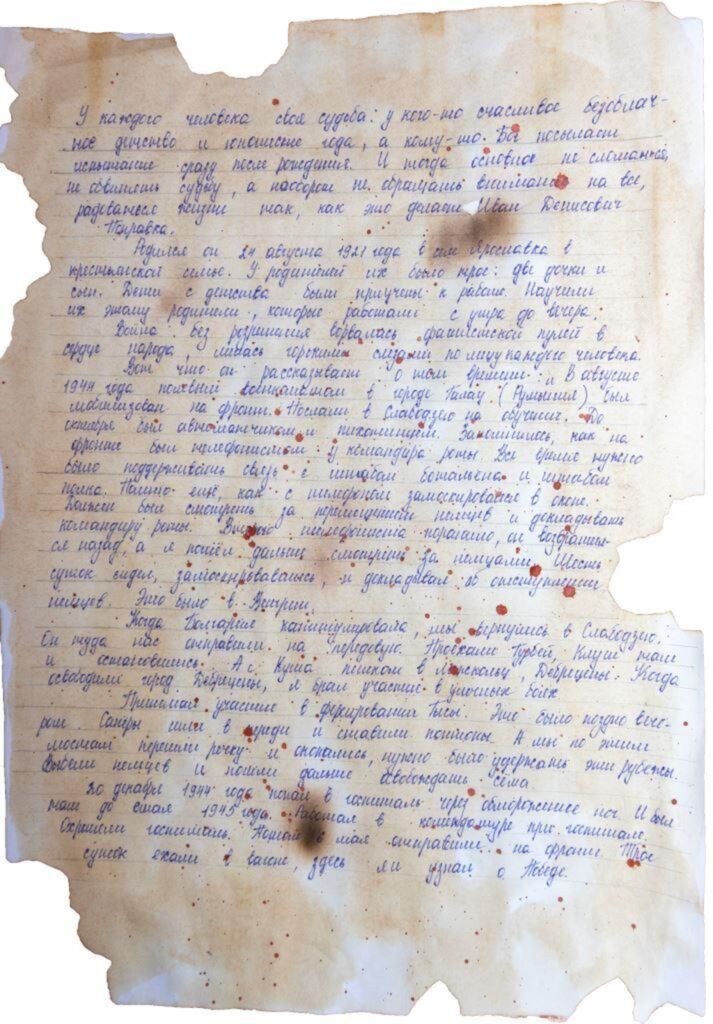 У каждого человека своя судьба: у кого-то счастливое безоблач-
ное детство и юношеские года, а кому-то Бог посылает
испытание сразу после рождения. И тогда основное не сломаться,
не обвинять судьбу, а наоборот не обращать внимания на все,
радоваться жизни так, как это делает Иван Денисович
Поправка.
Родился он 24 августа 1921 года в селе Ярославка в
крестьянской семье. У родителей их было трое: две дочки и
сын. Дети с детства были приучены к работе. Научили
их этому родители, которые работали с утра до вечера.
Война без разрешения ворвалась фашистской пулей в
сердце народа, лилась горькими слезами по лицу каждого человека.
Вот что он рассказывает о том времени: „В августе
1944 года полевым военкоматом в городе Галац (Румыния) был
мобилизован на фронт. Послали в Слабодзею на обучение. До
октября был автоматчиком и пехотинцем. Запомнилось, как на
фронте был телефонистом у командира роты. Все время нужно
было поддерживать связь с штабом батальона и штабом
полка. Помню ещё, как с телефоном замаскировался в окопе.
Должен был смотреть за перемещением немцев и докладывать
командиру роты. телефониста поранило, он возвратил-
ся назад, а я пошёл дальше смотреть за немцами. Шесть
суток сидел, замаскировавшись, и докладывал об отступлении
немцев. Это было в Венгрии.
Когда Болгария капитулировала, мы вернулись в Слабодзею.
Он туда нас отправили на передовую. Проехали Турней, Клуж там
и остановились. А с Клужа пешком в Дебрецены. Когда
освободили город Дебрецены, я брал участие в уличных боях.
Принимал участие в форсировании Тисы. Это было поздно вече-
ром. Саперы шли в переди и ставили понтоны. А мы по этим
мостам перешли речку и окопались, нужно было удержать эти рубежи.
Выбили немцев и пошли дальше освобождать сёла.
20 декабря 1944 года попал в госпиталь через обморожение ног. И был
там до мая 1945 года. Работал в комендатуре при госпитале.
Охраняли госпиталь. Потом в мая отправили на фронт. Трое
суток ехали в вагоне, здесь я и узнал о Победе.